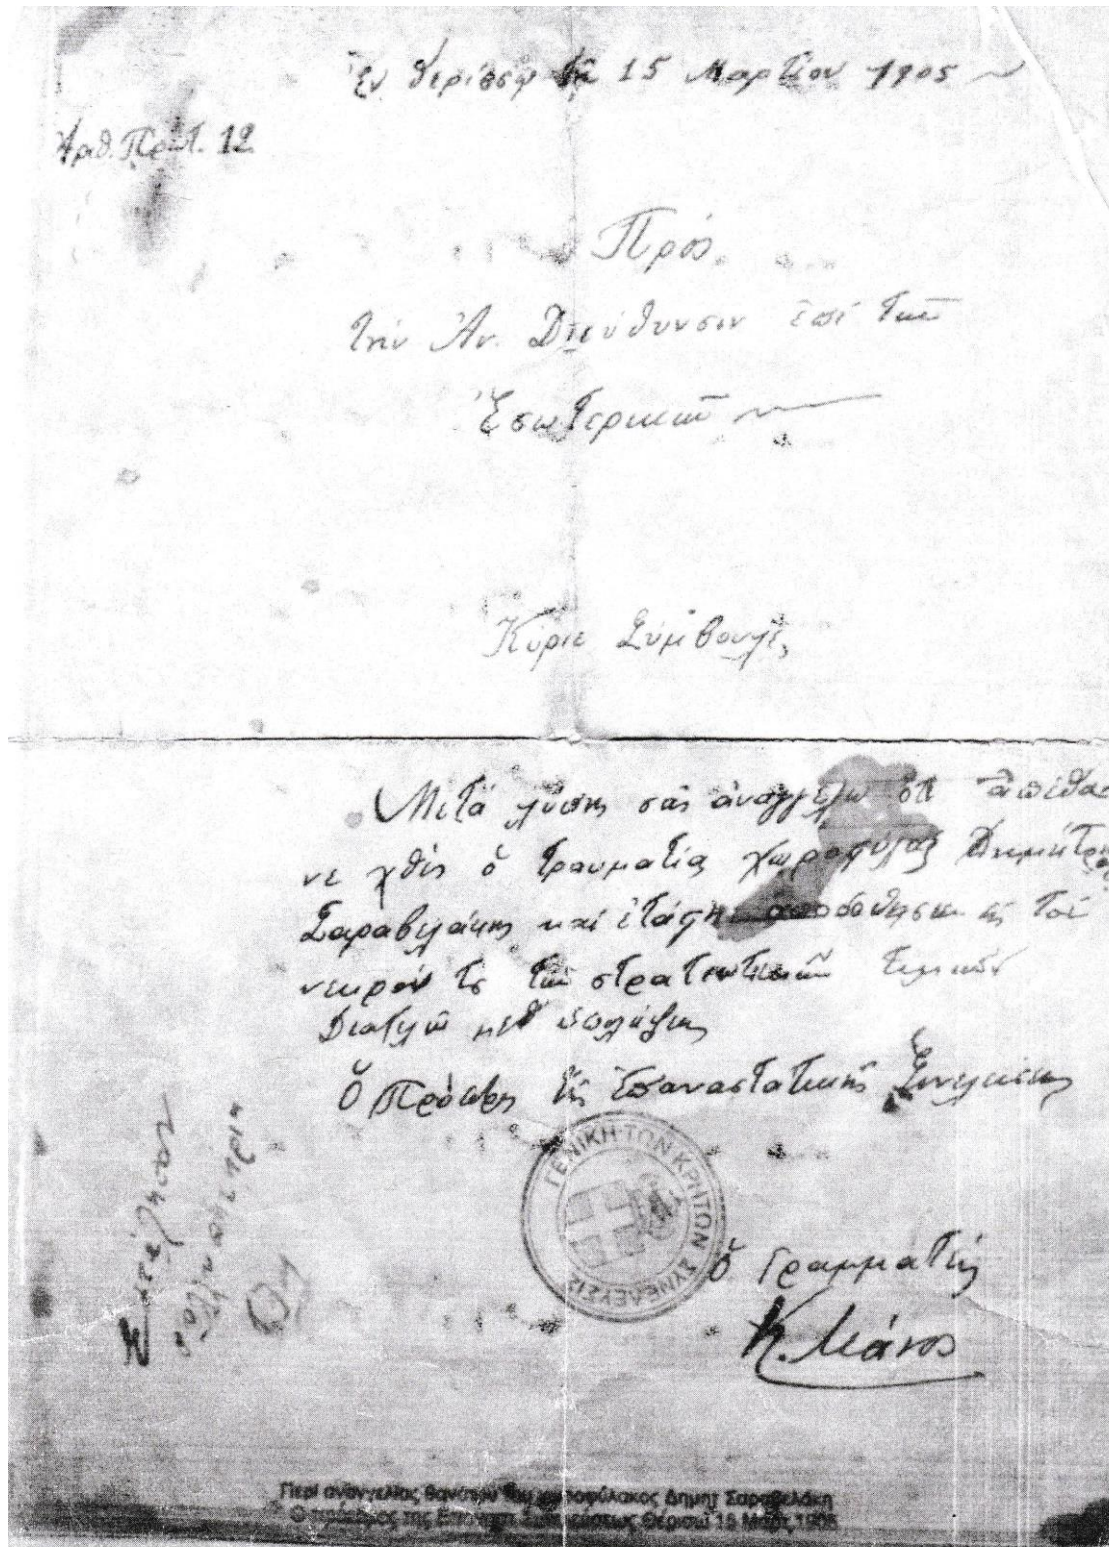 Ἐν Θερίσσῳ τῇ 15 Μαρτίου 1905
Ἀριθ. Πρωτ. 12
Πρὸς
τὴν Ἀν. Διεύθυνσιν ἐπὶ τῶν
Ἐσωτερικῶν
Κύριε Σύμβουλε,
Μετὰ λύπης σᾶς ἀναγγέλω ὅτι ἀπέθα
νε χθὲς ὁ τραυματίας χωροφύλαξ Δημήτριος
Σαραβελάκης καὶ ἐτάφη ἀποδοθησῶν εἰς τὸν
νεκρόν τε τῶν στρατιωτικῶν τιμῶν
Διατελῶ μεθ' ὑπολήψεως
Ὁ Πρόεδρος τῆς Ἐπαναστατικῆς Συνελεύσεως
ΓΕΝΙΚΗ ΤΩΝ ΚΡΗΤΩΝ ΣΥΝΕΛΕΥΣΙΣ
Ὁ Γραμματεύς
Κ. Μάνος
Περί αναγγελίας θανάτου του χωροφύλακος Δημητ Σαραβελάκη
Ο πρόεδρος της Επαναστ. Συνελεύσεως Θέρισσῳ 15 Μαρτ. 1905